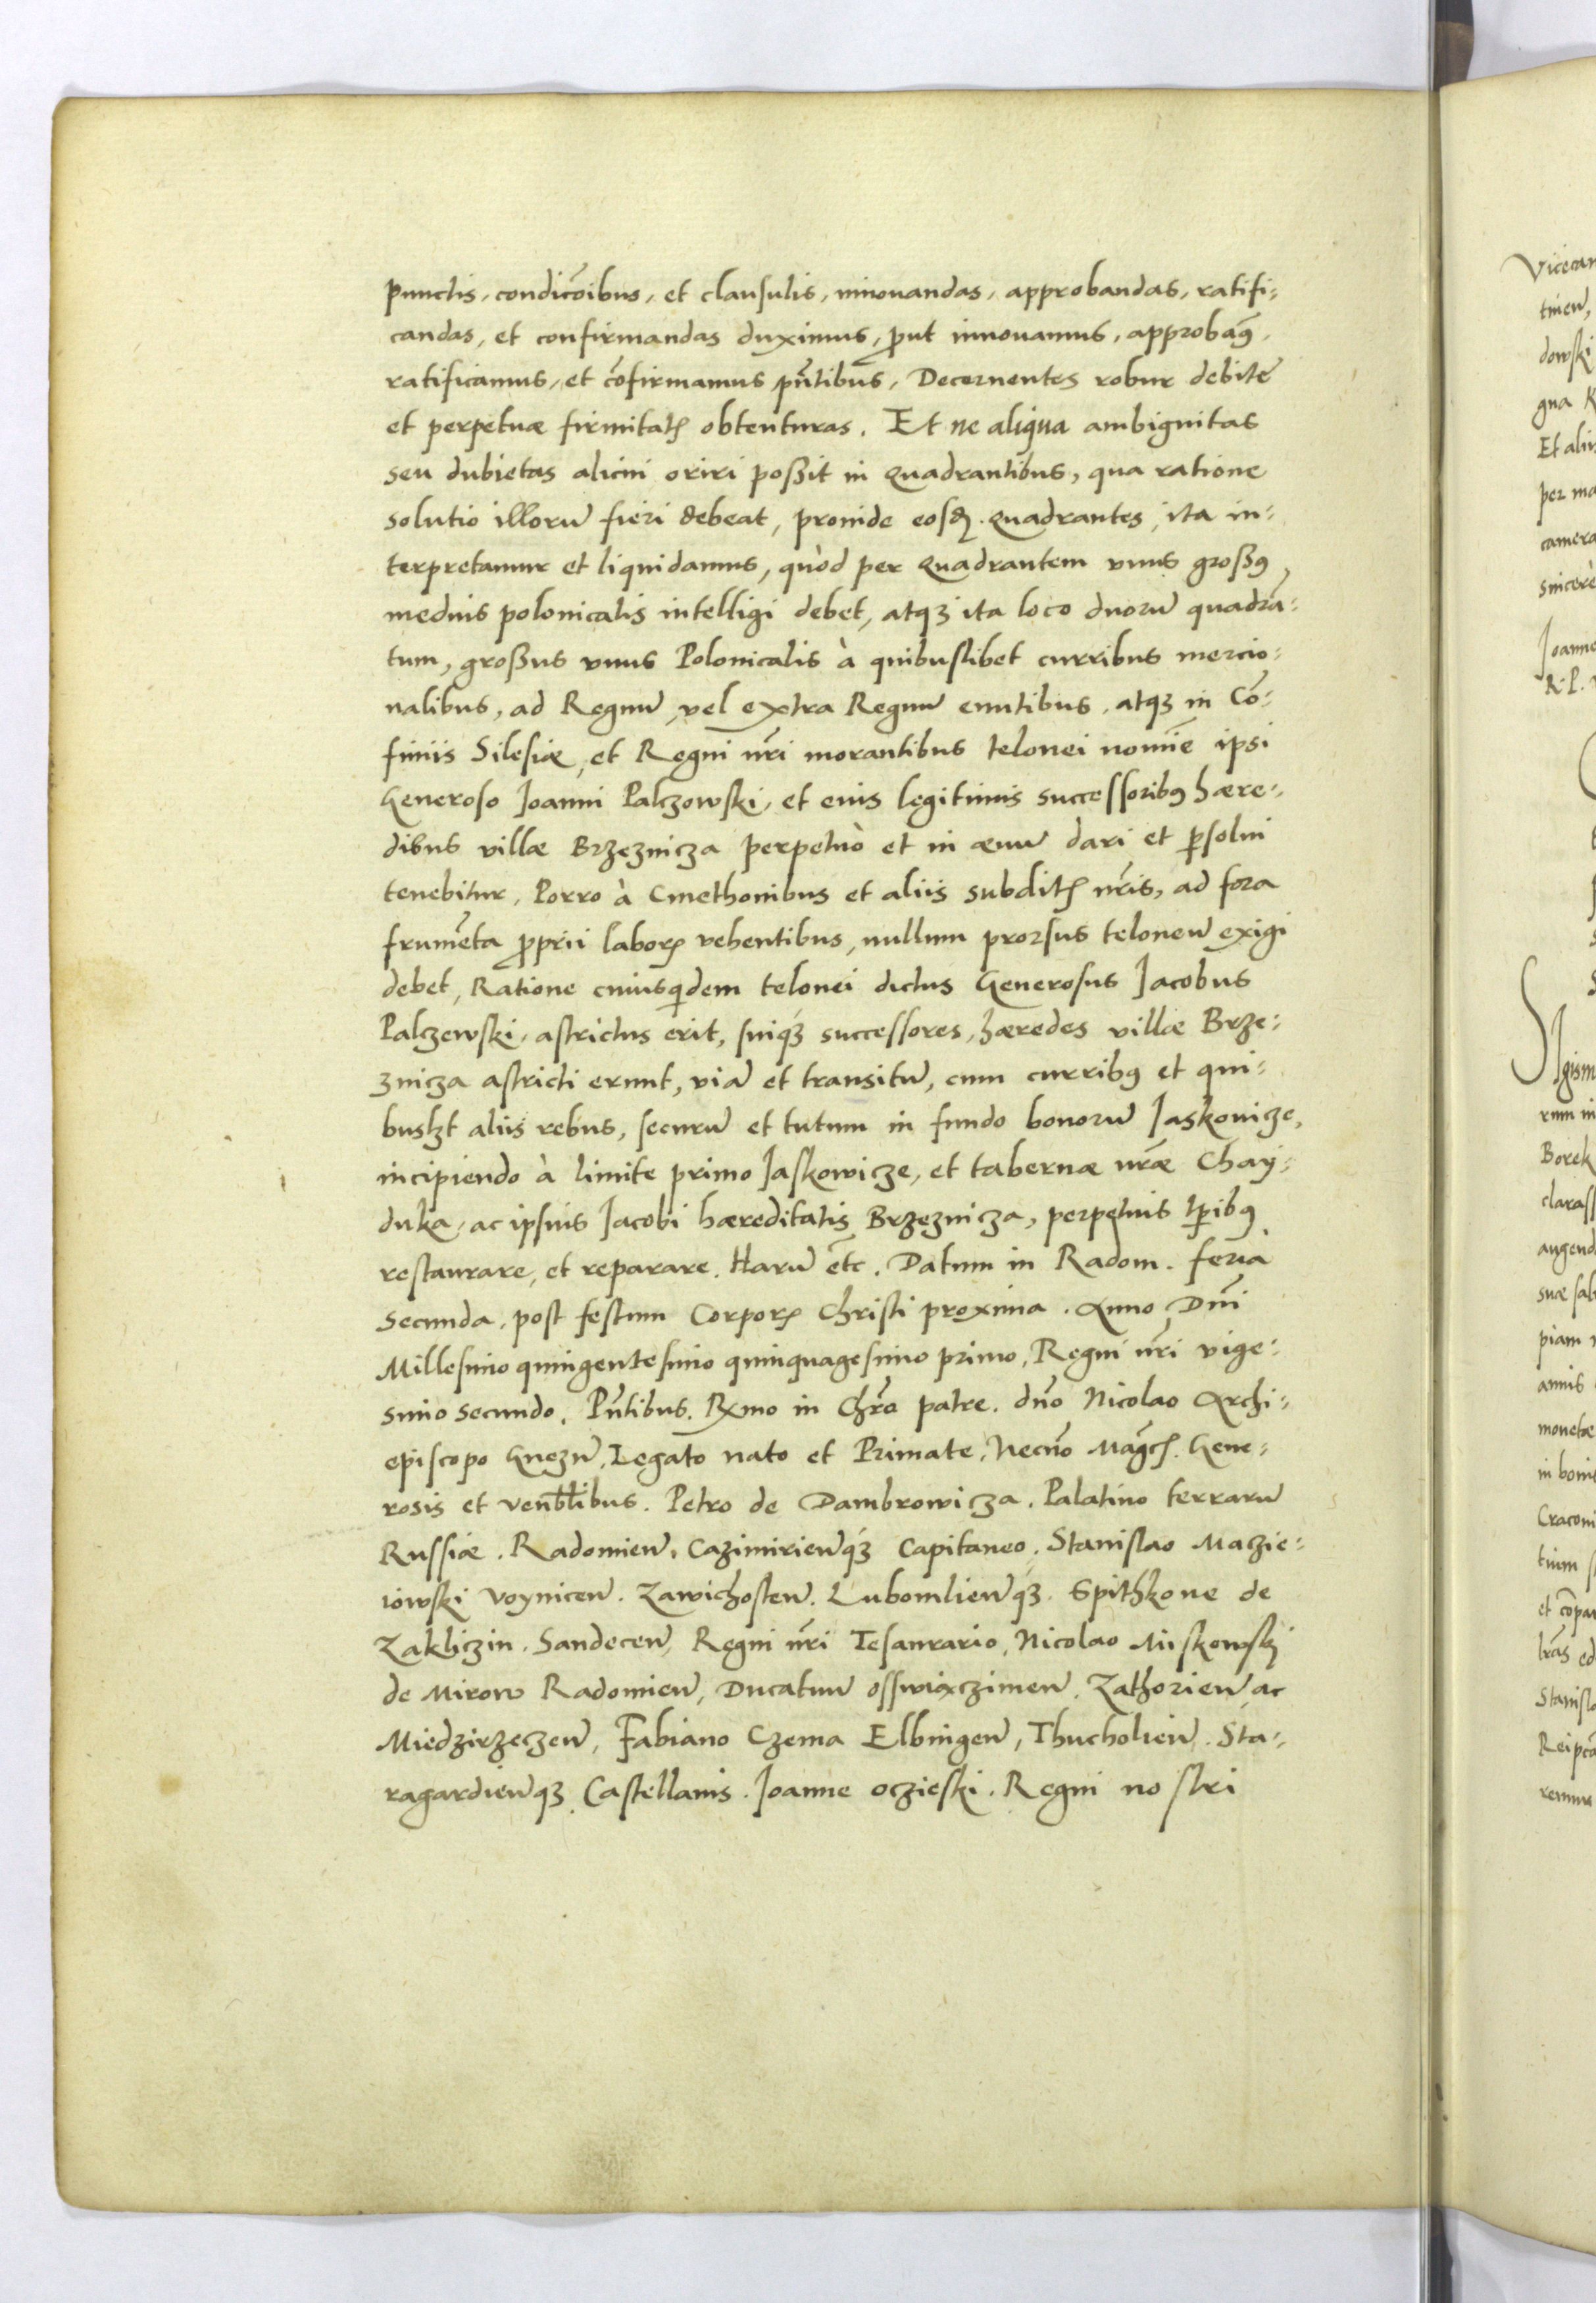 punctis, condic̃oibus, et clausulis, innouandas, approbandas, ratifi-
candas, et confirmandas duximus, ꝓut innouamus, approbam̃9,
ratificamus, et cõfirmamus pñtibus, Decernentes robur debitæ
et perpetuæ firmitatꝭ obtenturas. Et ne aliqua ambiguitas
seu dubietas alicui oriri poßit in quadrantibus, qua ratione
solutio illorũ fieri debeat, proinde eosdꝫ quadrantes, ita in-
terpretamur et liquidamus, quòd per quadrantem vnus großꝰ
medius polonicalis intelligi debet, atqꝫ ita loco duorũ quadrã-
tum, großus vnus Polonicalis à quibuslibet curribus mercio-
nalibus, ad Regnũ, vel extra Regnũ euntibus, atqꝫ in Cõ-
finiis Silesiæ, et Regni nr̃i morantibus telonei nomĩe ipsi
Generoso Joanni Palczowski, et eius legitimis successoribꝰ hære-
dibus villæ Brzeznicza perpetuò et in æuũ dari et ꝑsolui
tenebitur, Porro à Cmethonibus et aliis subditꝭ nr̃is, ad fora
frumẽta ꝓprii laborꝭ vehentibus, nullum prorsus teloneũ exigi
debet, Ratione cuiusq̇dem telonei dictus Generosus Jacobus
Palczewski, astrictus erit, suiqꝫ successores, hæredes villæ Brze-
znicza astricti erunt, viã et transitũ, cum curribꝰ et qui-
buslꝫt aliis rebus, securũ et tutum in fundo bonorũ Jaskouicze,
incipiendo à limite primo Jaskowicze, et tabernæ nr̃æ Chay-
duka, ac ipsius Jacobi hæreditatis Brzeznicza, perpetuis tꝑibꝰ
restaurare, et reparare. Harũ etc̃. Datum in Radom. feria
secunda, post festum Corporꝭ Christi proxima. Anno Dñi
Millesimo quingentesimo quinquagesimo primo, Regni nr̃i vige-
simo secundo. Pñtibus. Rx̃mo in Chr̃o patre. dño Nicolao Archi-
episcopo Gnezñ, Legato nato et Primate, Necñõ Mag̃cꝭ. Gene-
rosis et Venbl̃ibus. Petro de Dambrowicza. Palatino terrarũ
Russiæ. Radomieñ, Cazimirieñqꝫ Capitaneo. Stanislao Maczie-
iowski Voyniceñ. Zawichosteñ. Lubomlieñqꝫ. Spithkone de
Zakliczin. Sandeceñ, Regni nr̃i Tesaurario, Nicolao Miskowskj
de Mirow Radomieñ, Ducatuũ osswiæczimeñ, Zathorieñ ac
Miedzirzeczeñ, Fabiano Czema Elbingeñ, Thucholieñ. Sta-
ragardieñqꝫ Castellanis. Joanne oczieski. Regni nostri